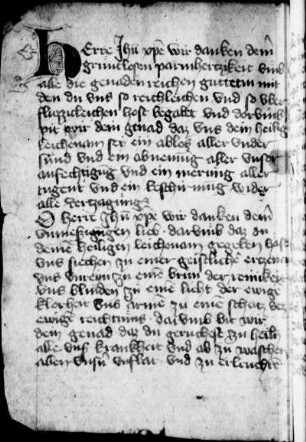 Herre Jhū xp̄e wir danken deīn
grūntlosen parmhertzikeit vmb
alle die genadenreichen guttetin mit
den du vns so reichleichen vnd so vber
fluzzicleichen host begabet vnd dorumb
pit wir dein genad daz vns dein heilig
leichenam sey ein ablos aller vnser
sund vnd ein abneming aller vnser
anfechtigūg vnd ein merūng aller
tugent vnd ein beschirmung wider
alle verzagūng
O herre Jhū xp̄e wir danken deīn
lieb darumb daz du
deine heiligen leichenam gegeben host
vns siechen zu einer geistliche ertzen
vns vnrein zu eine brun der reinikeit
vns blinden zu eine licht der ewige
klarheit vns arme zu eine schatz der
ewige reichtums darumb bit wir
dein genad daz du geruchst zu heiln
alle vns krankheit vnd ab zu waschen
allen vnsn vnflat vnd zu erleuchte